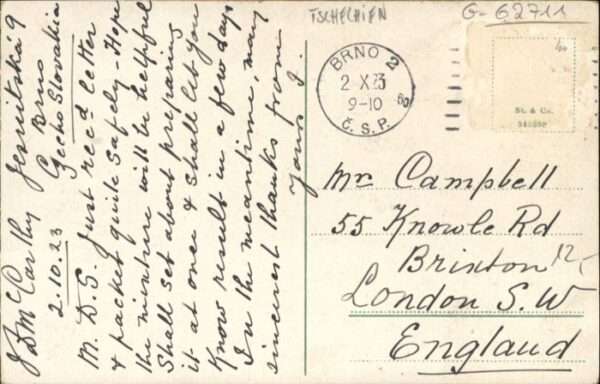 J D McCarthy Jesuitská 9
Brno
2.10.23 Gecho Slovakia
M. D. S. Just recd letter
& packet quite safely - Hope
the mixture will be helpful
Shall set about preparing
it at once & shall let you
Know result in a few days
In the meantime, many
sincerest thanks from
Yours J.
TSCHECHIEN
G-62711
BRNO 2
2 X 23
9-10
Č.S.P.
St. & Co.
Mr Campbell
55 Knowle Rd
Brixton
12,-
London S.W
England